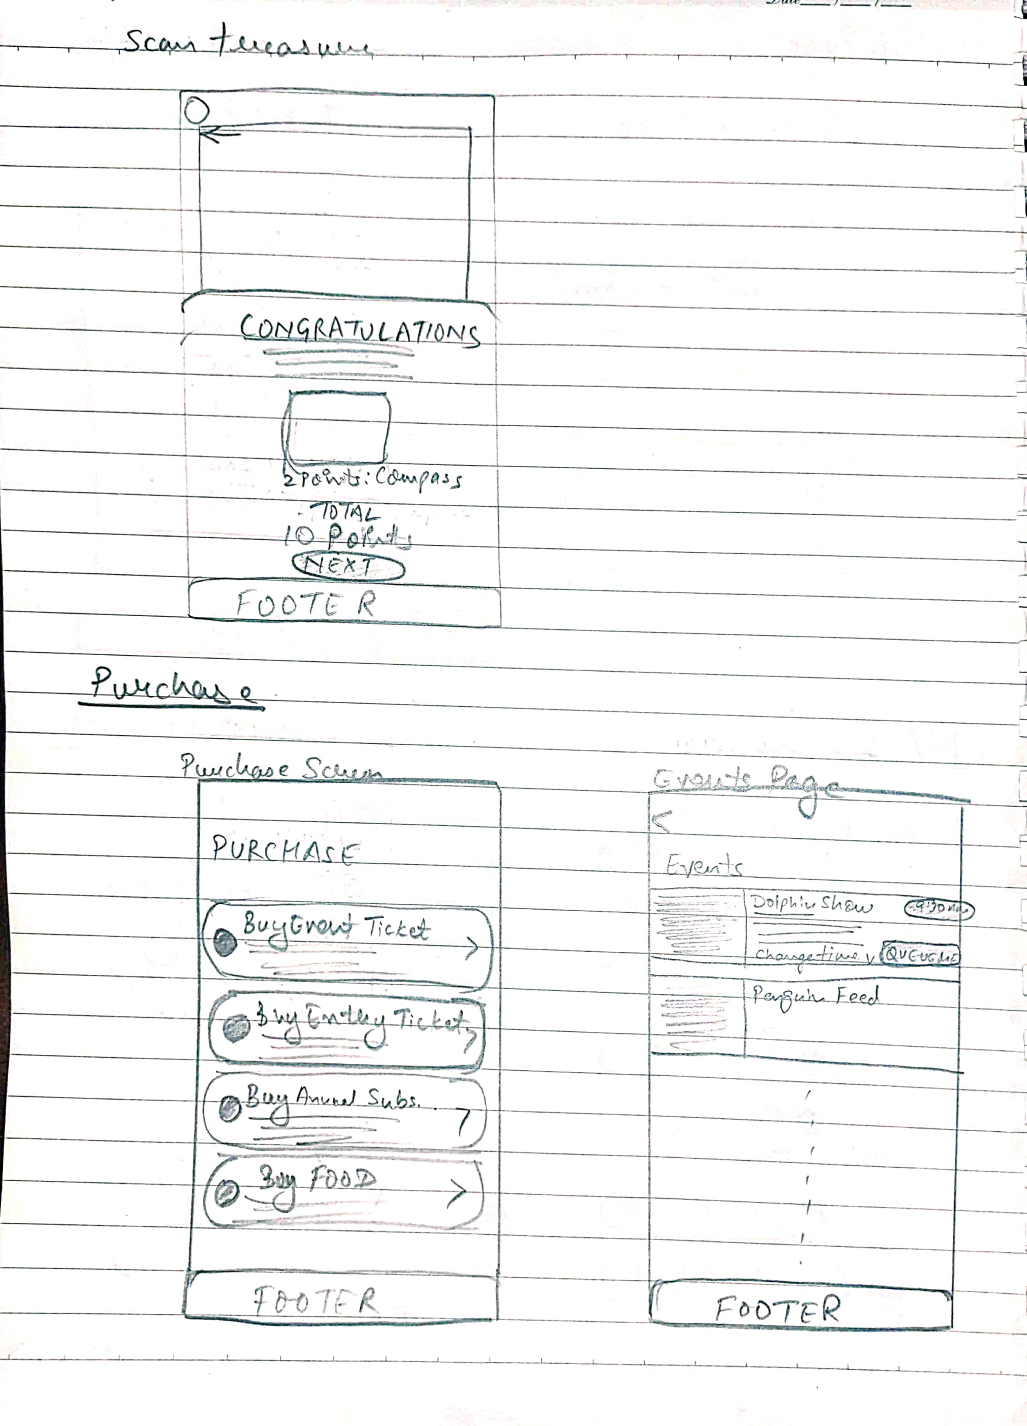 Date
Scan treasure
CONGRATULATIONS
2 Points: Compass
TOTAL
10 Points
NEXT
FOOTER
Purchase
Purchase Screen
PURCHASE
Buy Event Ticket
Buy Entry Ticket
Buy Annual Subs.
Buy FOOD
FOOTER
Events Page
Events
Dolphin Show
change time
QUEUE ME
Penguin Feed
FOOTER